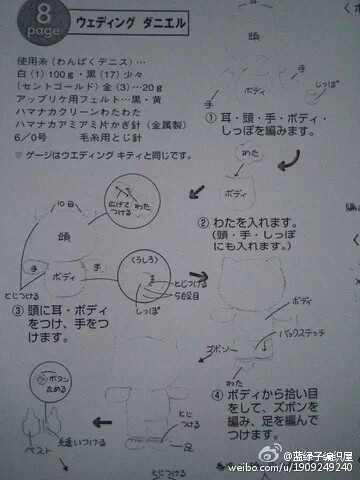 8
page
ウェディング ダニエル
使用糸(わんぱくデニス)…
白(1)100g・黒(17)少々
(セントゴールド)金(3)…20g
アップリケ用フェルト…黒・黄
ハマナカクリーンわたわた
ハマナカアミアミ片かぎ針(金属製)
6/0号 毛糸用とじ針
▽ゲージはウエディング キティと同じです。
頭
手
ボディ
手
しっぽ
①耳・頭・手・ボディ・
しっぽを編みます。
わた
ボディ
②わたを入れます。
(頭・手・しっぽ
にも入れます。)
10目
広げて
つける
わた
頭
手
ボディ
手
とじつける
(うしろ)
とじつける
5段目
しっぽ
③頭に耳・ボディ
をつけ、手をつ
けます。
ボディ
ズボン
バックステッチ
わた
④ボディから拾い目
をして、ズボンを
編み、足を編んで
つけます。
ボタン
止める
ベスト
縫いつける
とじ
つける
足
@蓝绿子编织屋
weibo.com/u/1909249240